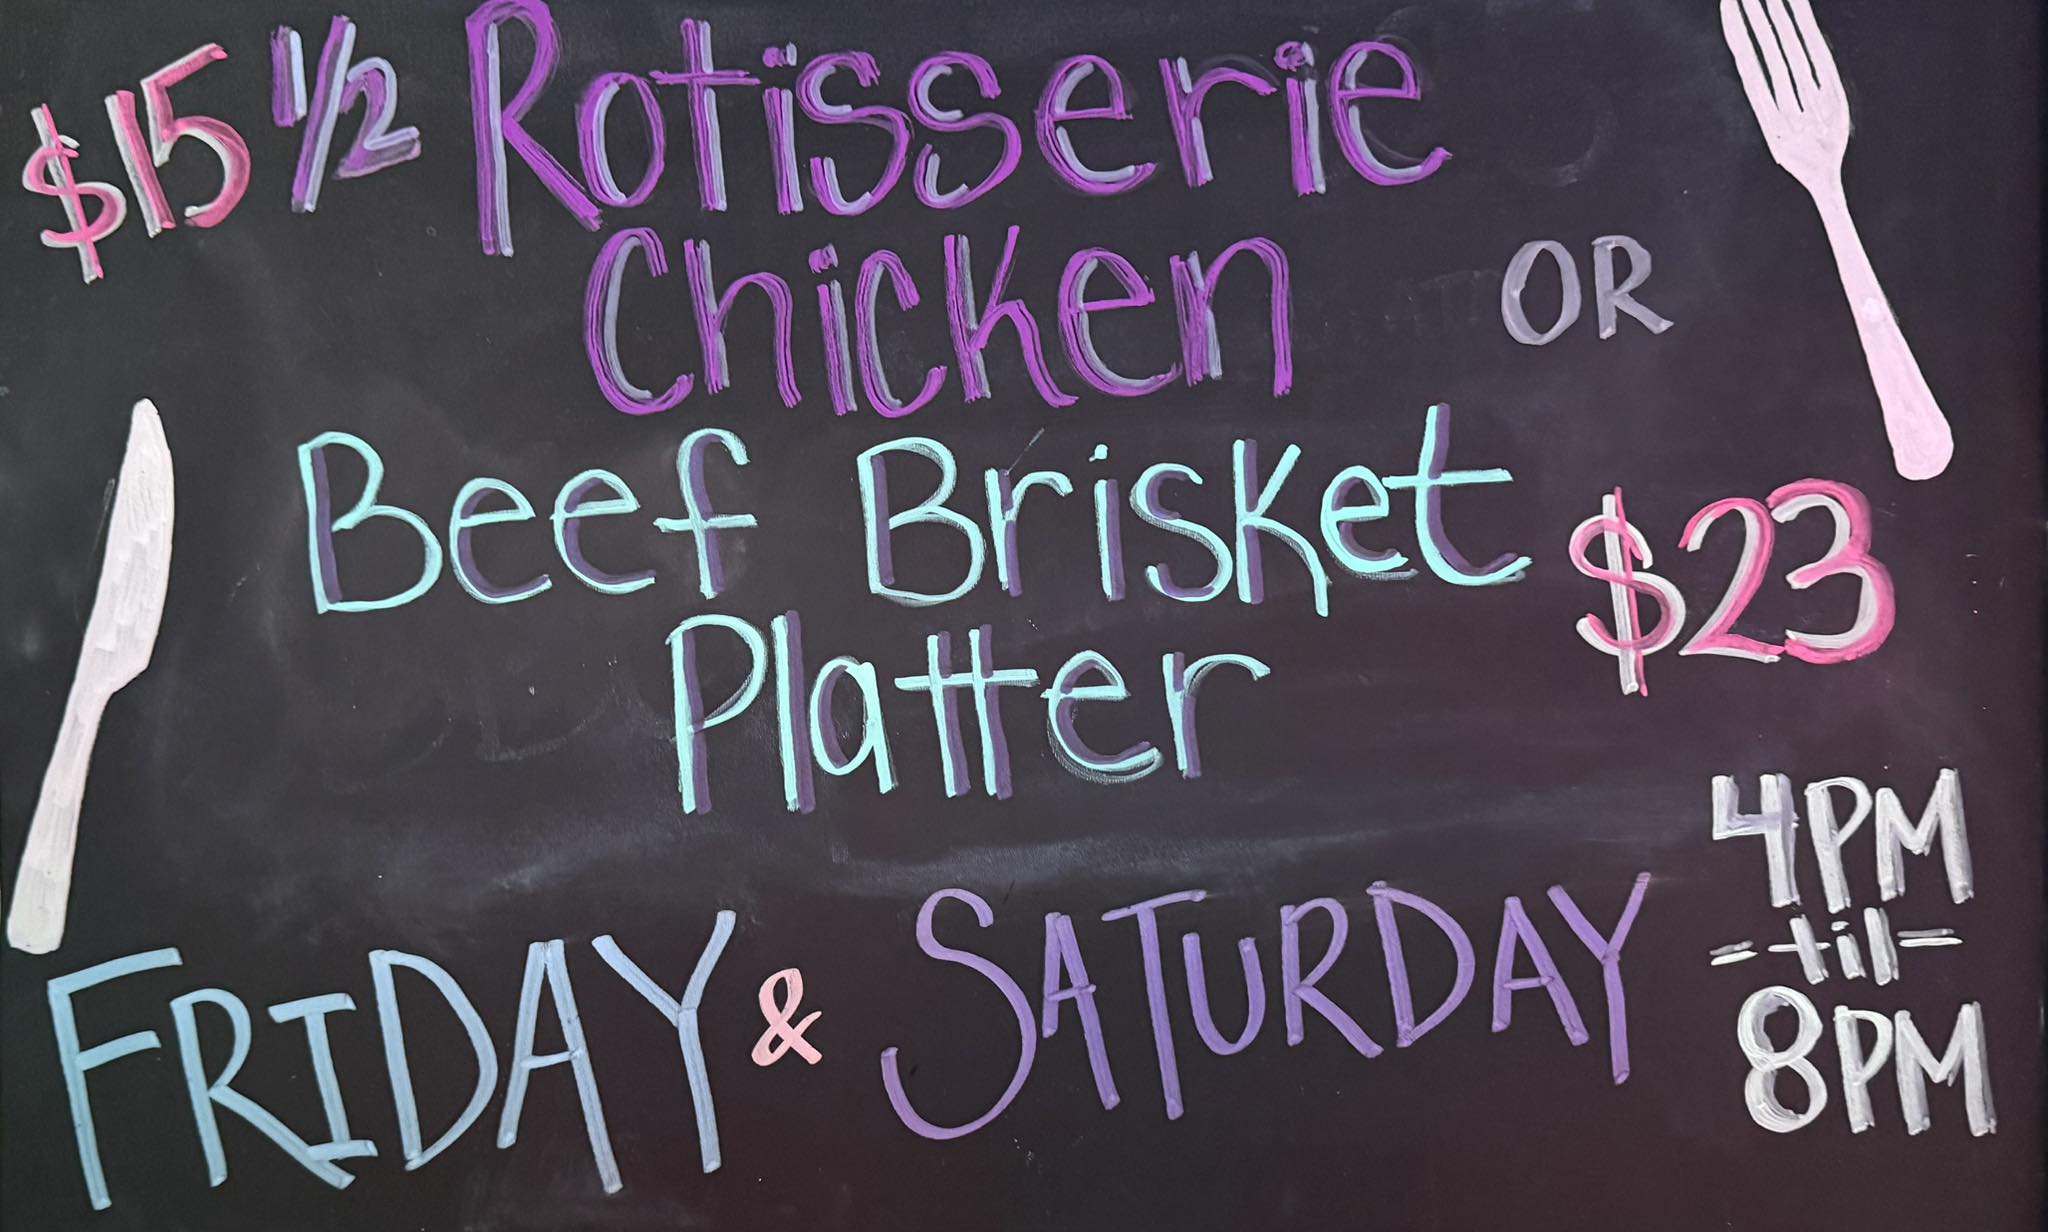 $15 1/2 Rotisserie
Chicken OR
Beef Brisket
Platter $23
FRIDAY & SATURDAY
4PM
-til-
8PM